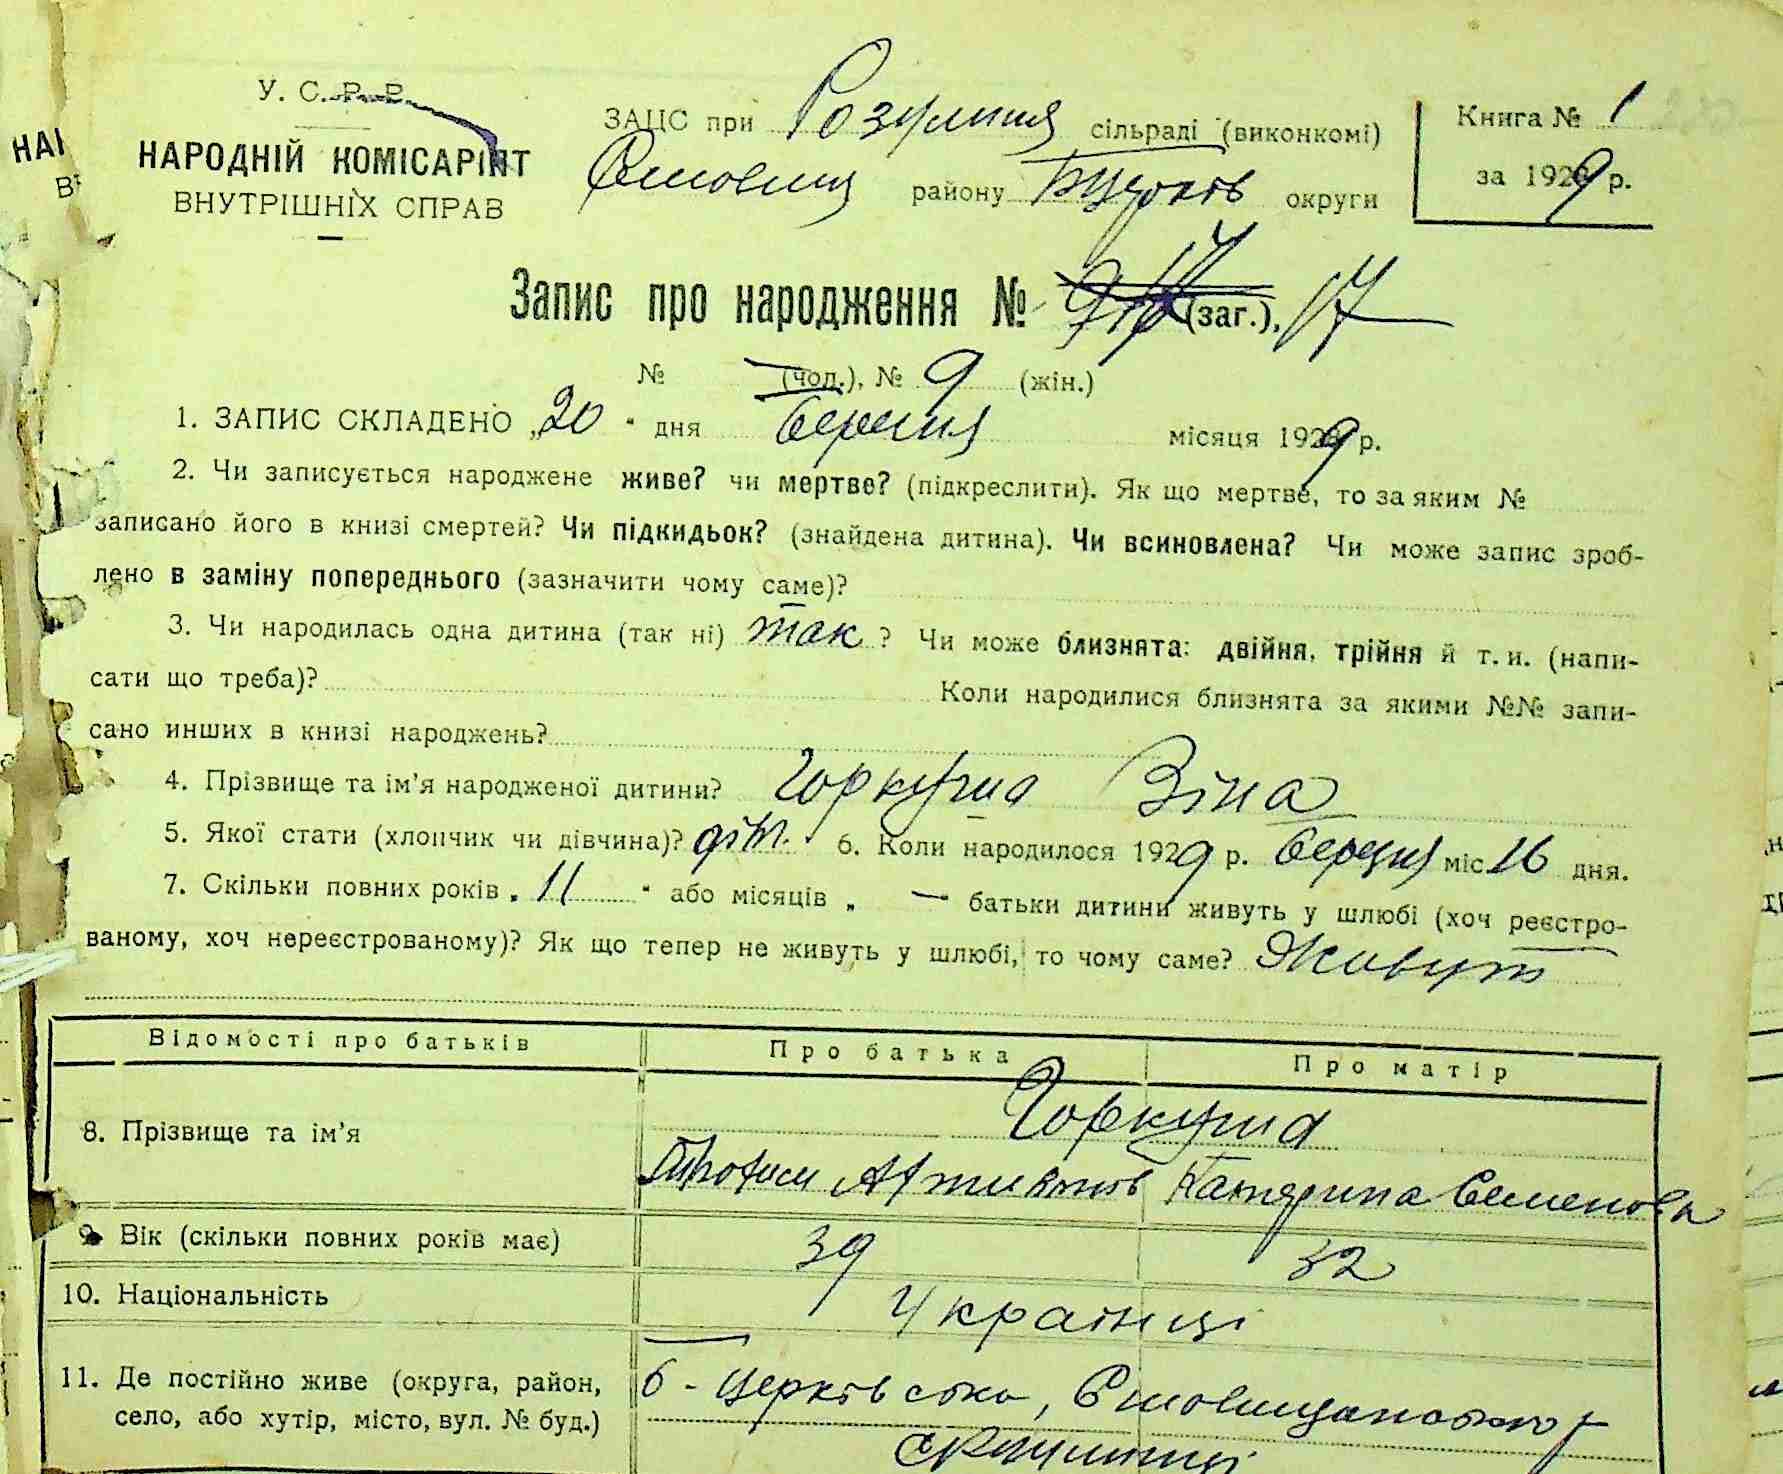 У. С. Р. Р.
НАРОДНІЙ КОМІСАРІЯТ
ВНУТРІШНІХ СПРАВ
ЗАЦС при сільраді (виконкомі)
району Бцерків округи
Книга № 1
за 1929 р.
Запис про народження № (заг.), 17
№ — (чол.), № 9 (жін.)
1. ЗАПИС СКЛАДЕНО „20 “ дня березня місяця 1929 р.
2. Чи записується народжене живе? чи мертве? (підкреслити). Як що мертве, то за яким №
записано його в книзі смертей? Чи підкидьок? (знайдена дитина). Чи всиновлена? Чи може запис зроб-
лено в заміну попереднього (зазначити чому саме)?
3. Чи народилась одна дитина (так ні) так ? Чи може близнята: двійня, трійня й т. и. (напи-
сати що треба)? Коли народилися близнята за якими №№ запи-
сано инших в книзі народжень?
4. Прізвище та ім’я народженої дитини? Горкуша Зіна
5. Якої стати (хлопчик чи дівчина)? діт. 6. Коли народилося 1929 р. березня міс. 16 дня.
7. Скільки повних років „ 11 “ або місяців „ — батьки дитини живуть у шлюбі (хоч реєстро-
ваному, хоч нереєстрованому)? Як що тепер не живуть у шлюбі, то чому саме? Живут
Відомості про батьків Про батька Про матір
8. Прізвище та ім’я Горкуша
Катерина Семенова
9. Вік (скільки повних років має) 39 32
10. Національність Українці
11. Де постійно живе (округа, район, Б - церківська,
село, або хутір, місто, вул. № буд.)